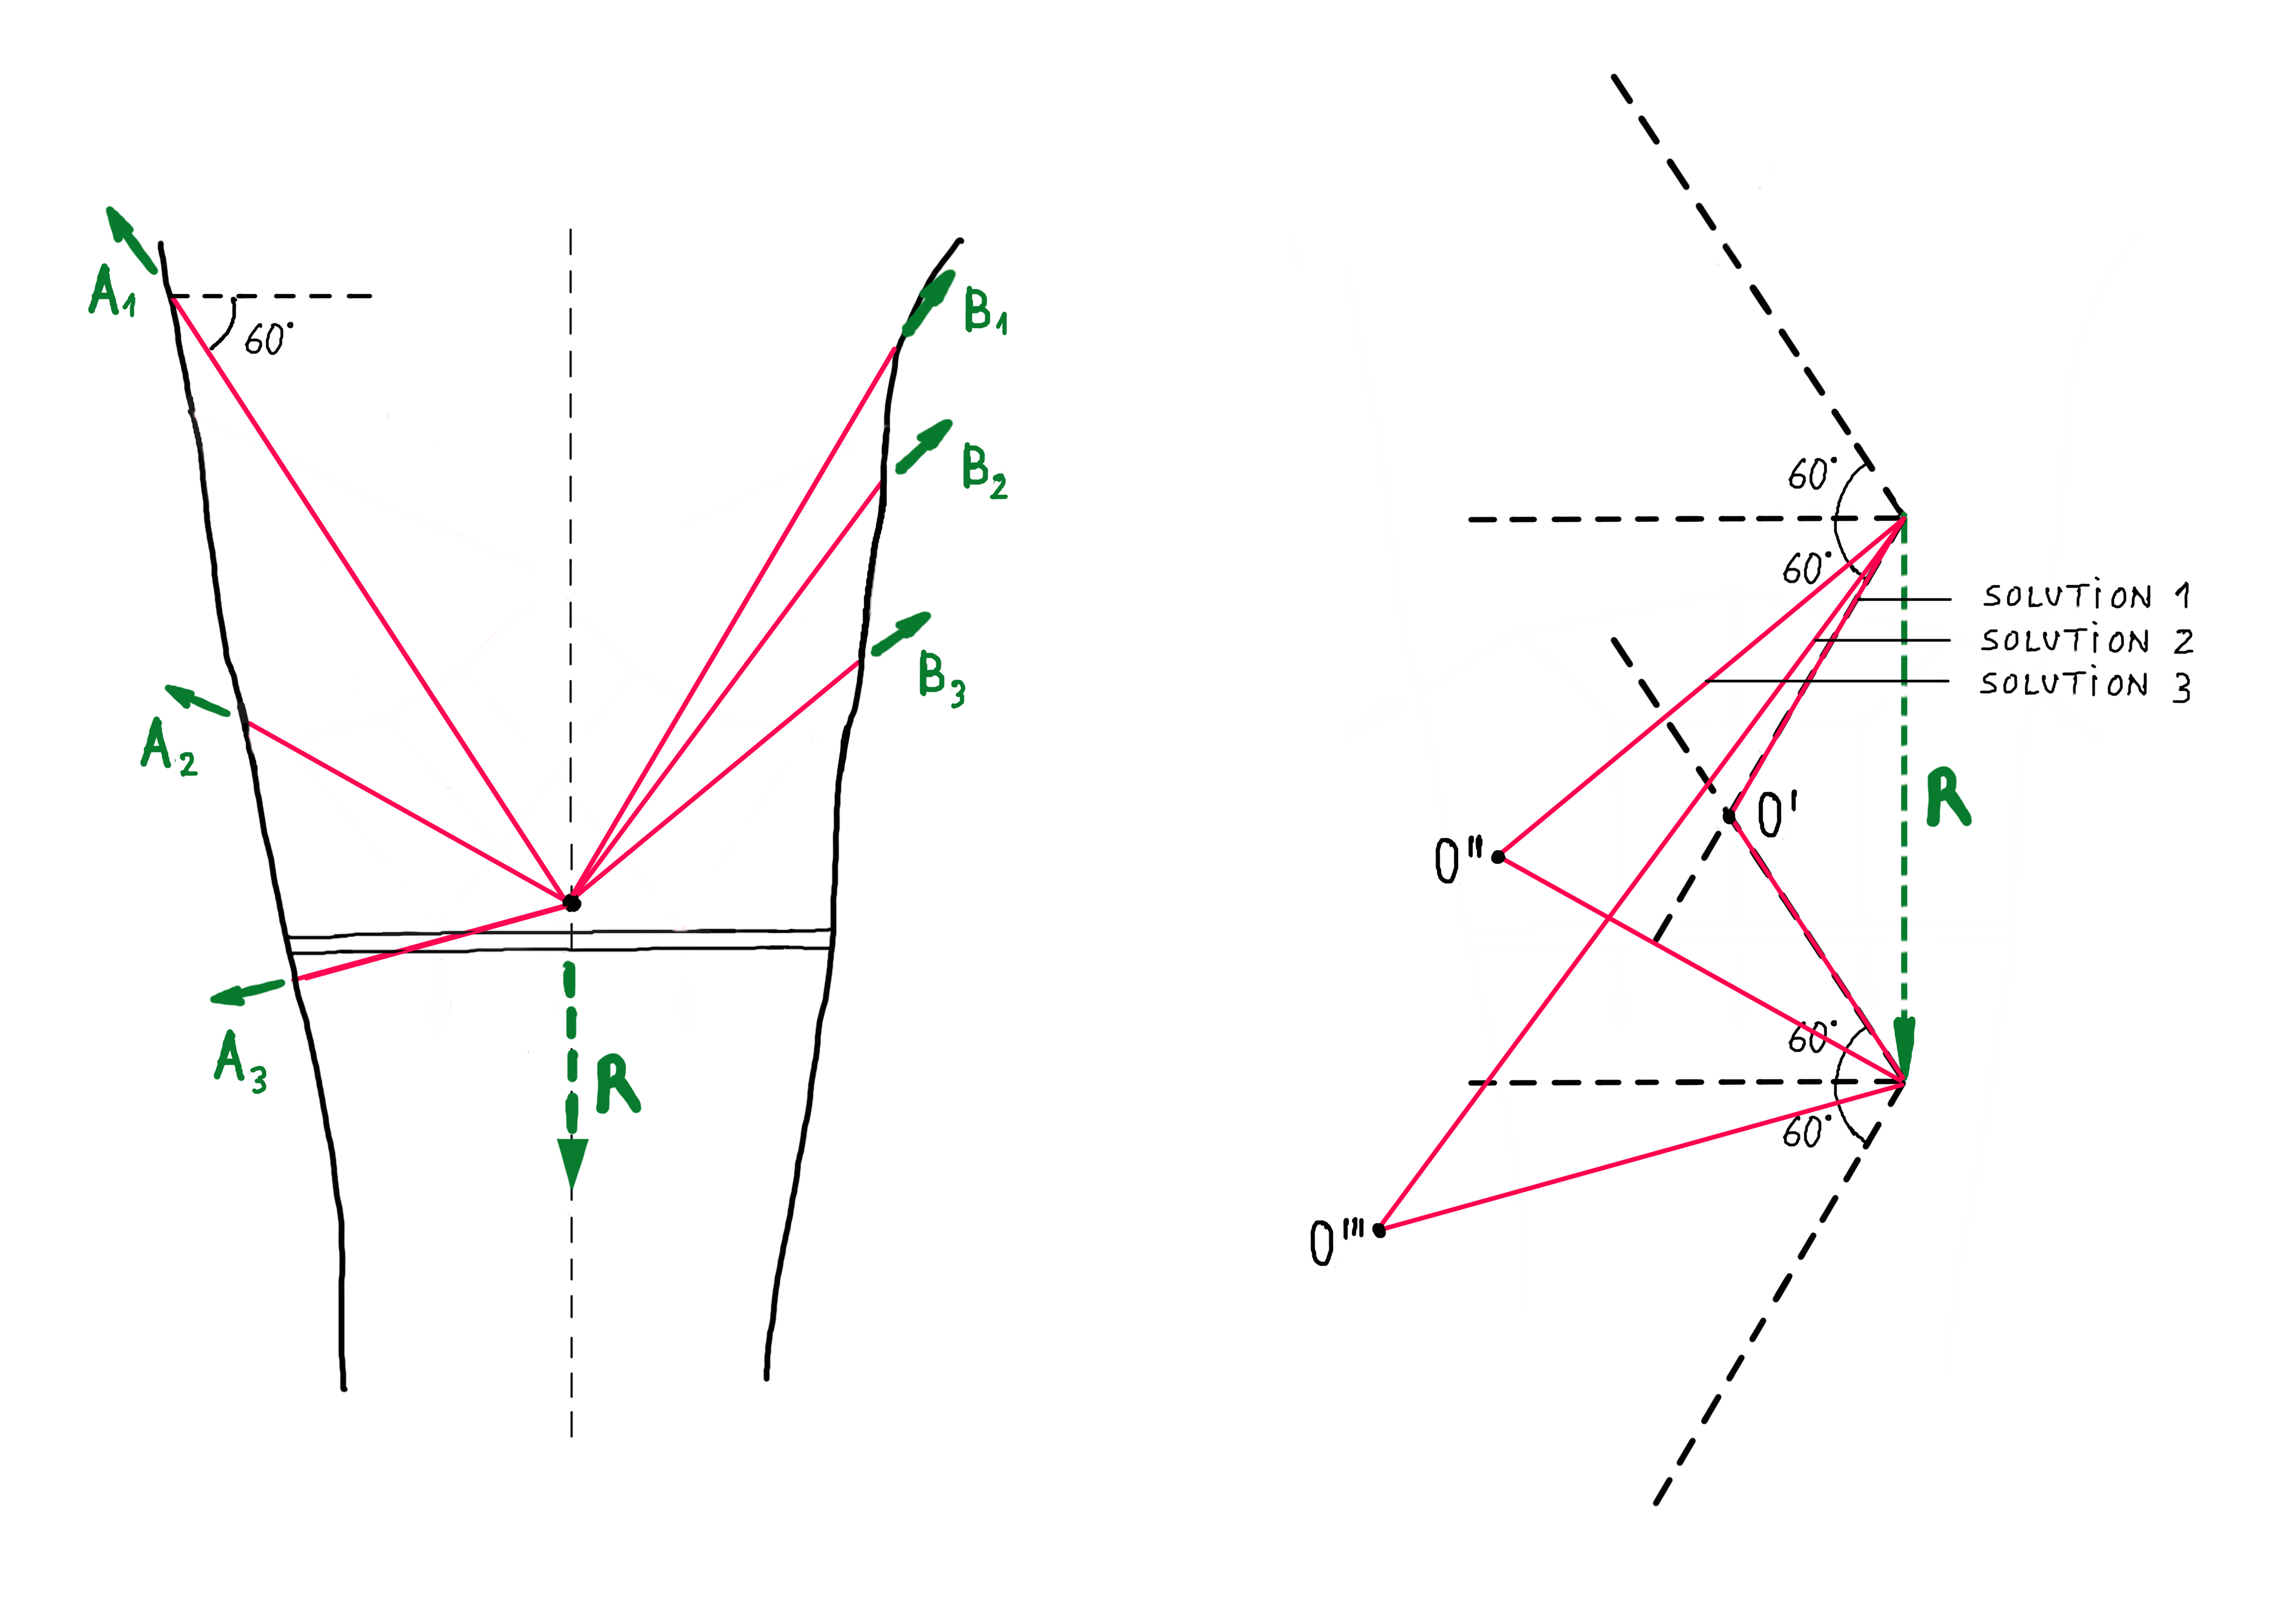 A1
60°
A2
A3
R
B1
B2
B3
60°
60°
SOLUTION 1
SOLUTION 2
SOLUTION 3
R
O'
O"
60°
60°
O'''